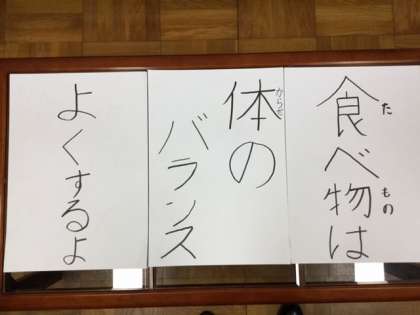 食べ物は
体の
バランス
よくするよ
た
もの
からだ